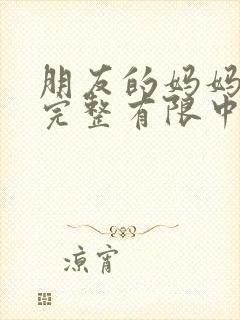 朋友的妈妈
完整有限中
凉宵